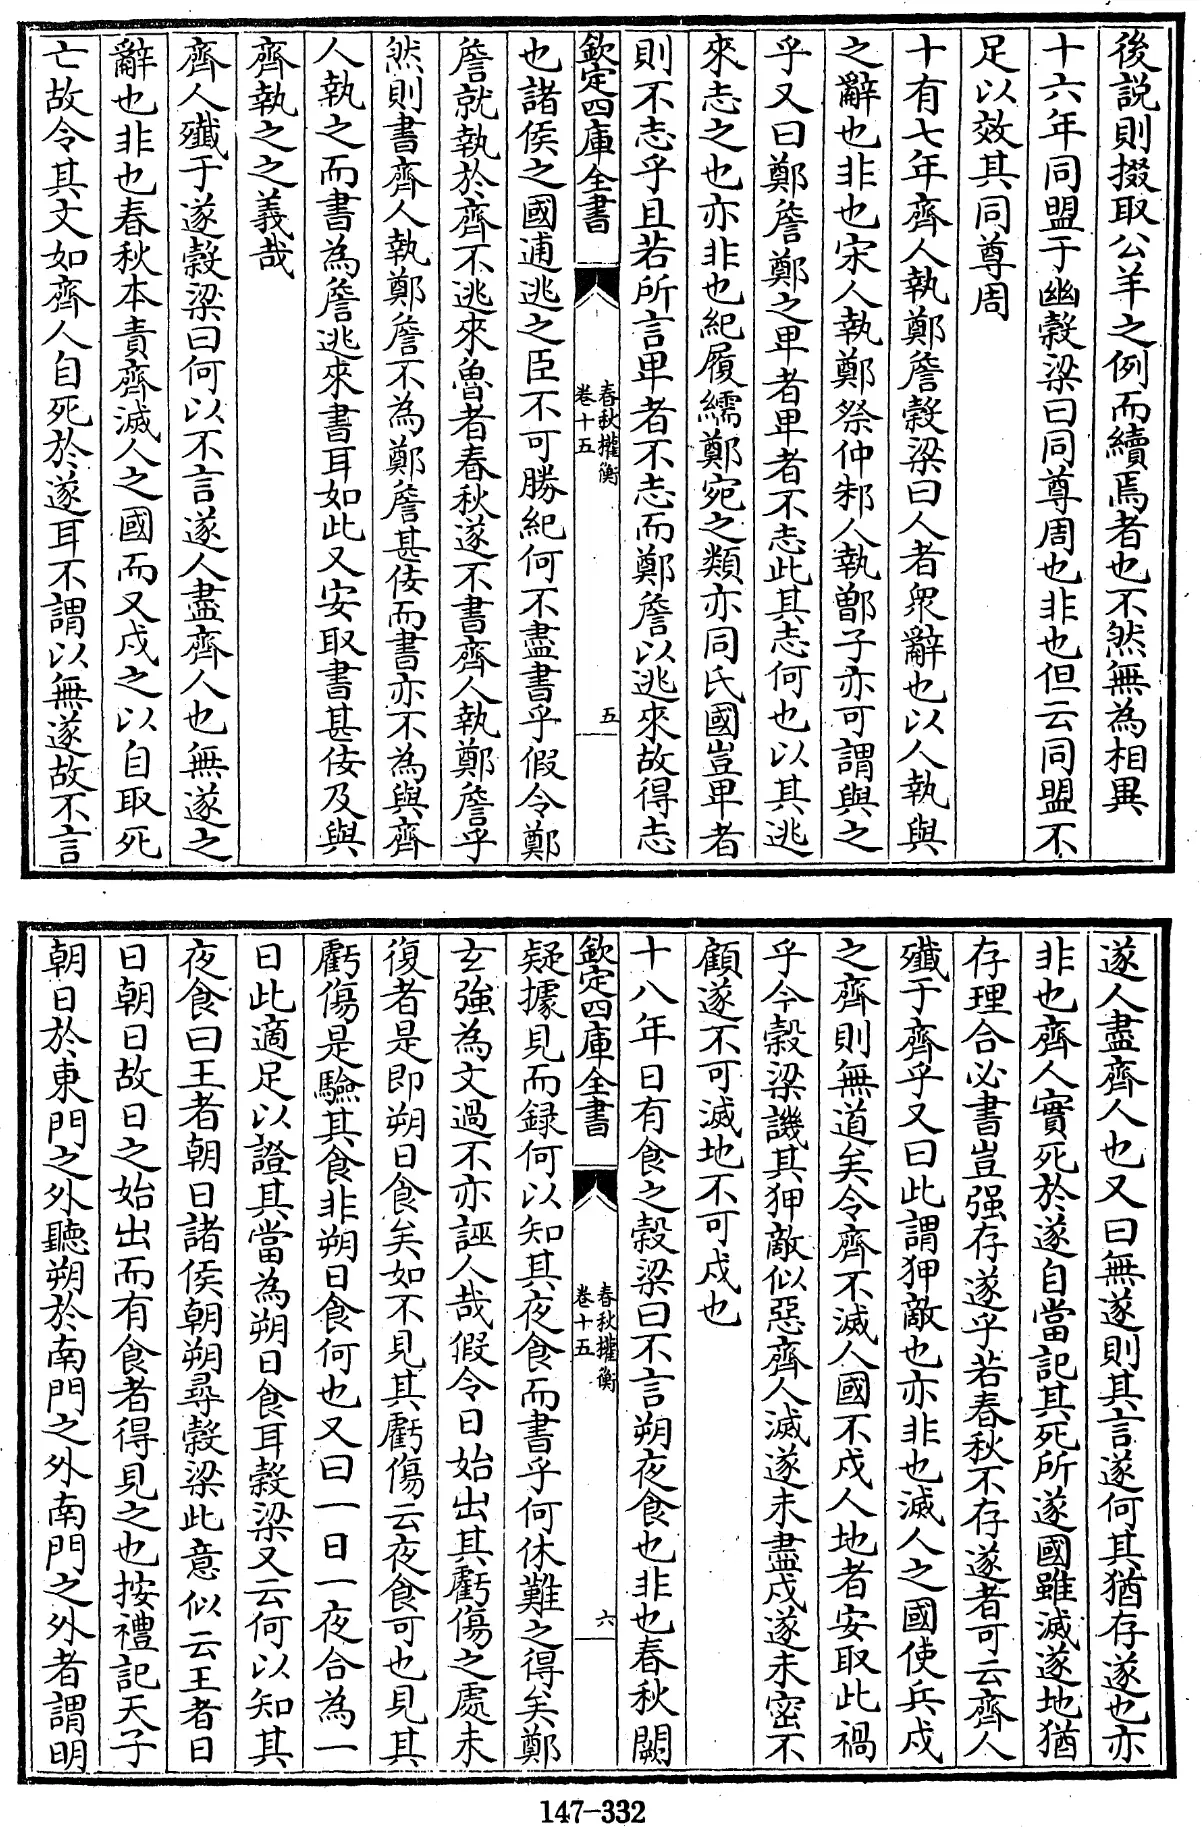 後説則掇取公羊之例而續焉者也不然無為相異
十六年同盟于幽穀梁曰同尊周也非也但云同盟不
足以效其同尊周
十有七年齊人執鄭詹穀梁曰人者衆辭也以人執與
之辭也非也宋人執鄭祭仲邾人執鄫子亦可謂與之
乎又曰鄭詹鄭之卑者卑者不志此其志何也以其逃
來志之也亦非也紀履繻鄭宛之類亦同氏國豈卑者
則不志乎且若所言卑者不志而鄭詹以逃來故得志
欽定四庫全書
春秋權衡
卷十五
五
也諸侯之國逋逃之臣不可勝紀何不盡書乎假令鄭
詹就執於齊不逃來魯者春秋遂不書齊人執鄭詹乎
然則書齊人執鄭詹不為鄭詹甚佞而書亦不為與齊
人執之而書為詹逃來書耳如此又安取書甚佞及與
齊執之之義哉
齊人殲于遂穀梁曰何以不言遂人盡齊人也無遂之
辭也非也春秋本責齊滅人之國而又戍之以自取死
亡故令其文如齊人自死於遂耳不謂以無遂故不言
遂人盡齊人也又曰無遂則其言遂何其猶存遂也亦
非也齊人實死於遂自當記其死所遂國雖滅遂地猶
存理合必書豈强存遂乎若春秋不存遂者可云齊人
殲于齊乎又曰此謂狎敵也亦非也滅人之國使兵戍
之齊則無道矣令齊不滅人國不戍人地者安取此禍
乎今穀梁譏其狎敵似惡齊人滅遂未盡戍遂未密不
顧遂不可滅地不可戍也
十八年日有食之穀梁曰不言朔夜食也非也春秋闕
欽定四庫全書
春秋權衡
卷十五
六
疑據見而録何以知其夜食而書乎何休難之得矣鄭
玄強為文過不亦誣人哉假令日始出其虧傷之處未
復者是即朔日食矣如不見其虧傷云夜食可也見其
虧傷是驗其食非朔日食何也又曰一日一夜合為一
日此適足以證其當為朔日食耳穀梁又云何以知其
夜食曰王者朝日諸侯朝朔尋穀梁此意似云王者日
日朝日故日之始出而有食者得見之也按禮記天子
朝日於東門之外聽朔於南門之外南門之外者謂明
147-332